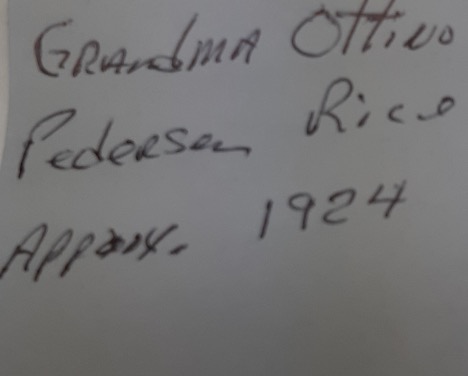 GRANdMA OTTiNO
PedeRSen Rice
APPROX. 1924